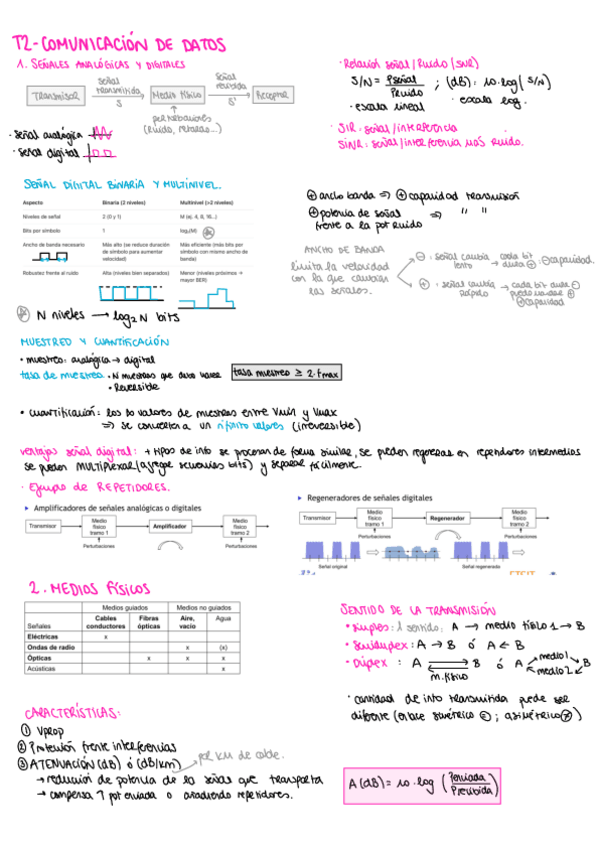 T2- COMUNICACIÓN DE DATOS
1. SEÑALES ANALÓGICAS Y DIGITALES
Transmisor
señal transmitida
S
Medio físico
señal recibida
S'
Receptor
perturbaciones
(ruido, retardo...)
· señal analógica
· señal digital
· Relación señal/Ruido (SNR)
S/N = Pseñal / Pruido ; (dB): 10·log (S/N)
· escala lineal
· escala log.
· SIR: señal/interferencia
SINR: señal/interferencia más ruido.
SEÑAL DIGITAL BINARIA Y MULTINIVEL.
Aspecto Binaria (2 niveles) Multinivel (>2 niveles)
Niveles de señal 2 (0 y 1) M (ej. 4, 8, 16…)
Bits por símbolo 1 log₂(M)
Ancho de banda necesario Más alto (se reduce duración de símbolo para aumentar velocidad) Más eficiente (más bits por símbolo con mismo ancho de banda)
Robustez frente al ruido Alta (niveles bien separados) Menor (niveles próximos → mayor BER)
N niveles → log₂N bits
⊕ ancho banda => ⊕ capacidad transmisión
⊕ potencia de señal => " "
frente a la pot ruido
ANCHO DE BANDA
limita la velocidad
con la que cambian
las señales.
⊖ : señal cambia lento → cada bit dura ⊕ : ⊖ capacidad.
⊕ : señal cambia rápido → cada bit dura ⊖
⊕ capacidad
MUESTREO Y CUANTIFICACIÓN
• muestreo: analógica → digital
tasa de muestreo • N muestras que debo hacer
• Reversible
tasa muestreo ≥ 2·fmax
• cuantificación: los ∞ valores de muestras entre Vmín y Vmax
=> se convierten a un nº finito valores (irreversible)
ventajas señal digital: + tipos de info se procesan de forma similar, se pueden regenerar en repetidores intermedios
se pueden MULTIPLEXAR (agregar secuencias bits) y separar fácilmente.
· Ejemplo de REPETIDORES.
▸ Amplificadores de señales analógicas o digitales
Transmisor
Medio físico tramo 1
Amplificador
Medio físico tramo 2
Perturbaciones
Perturbaciones
▸ Regeneradores de señales digitales
Transmisor
Medio físico tramo 1
Regenerador
Medio físico tramo 2
Perturbaciones
Perturbaciones
Señal original
Señal regenerada
2. MEDIOS FÍSICOS
Medios guiados Medios no guiados
Señales Cables conductores Fibras ópticas Aire, vacío Agua
Eléctricas x
Ondas de radio x (x)
Ópticas x x x
Acústicas x
SENTIDO DE LA TRANSMISIÓN
• Simplex: 1 sentido: A → medio físico 1 → B
• Semidúplex: A → B ó A ← B
• Dúplex : A B ó A B
m. físico
medio 1
medio 2
• cantidad de info transmitida puede ser
diferente (enlace simétrico ⊜; asimétrico)
CARACTERÍSTICAS:
① Vprop
② Protección frente interferencias
③ ATENUACIÓN (dB) ó (dB/km)
por km de cable.
→ reducción de potencia de la señal que transporta
→ compensa ↑ pot enviada o añadiendo repetidores.
A (dB) = 10·log (Penviada / Precibida)